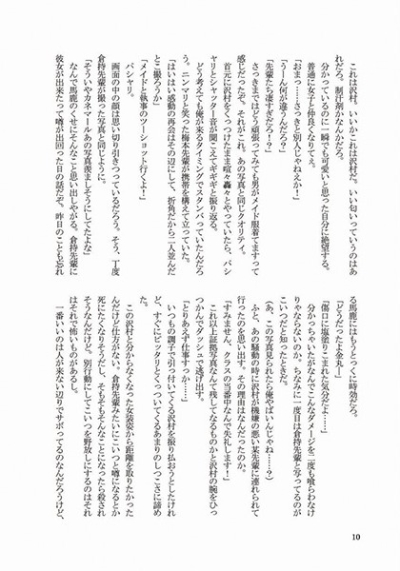 これは沢村。いいかこれは沢村だ。いい匂いっていうのはあ
れだろ。制汗剤かなんかだろ。
分かっているのに一瞬でも可愛いと思った自分に絶望する。
普通に女子と仲良くなりてぇ。
「おまっ……さっきと別人じゃねえか！」
「うーん何が違うんだろ？」
「先輩たち凄すぎだろ…？」
さっきまではどう頑張ってみても男がメイド服着てますって
感じだったぞ。それがこれ。あの写真と同じクオリティ。
首元に沢村をくっつけたまま喧々轟々とやっていたら、パシ
ャリとシャッター音が聞こえてギギギと振り返る。
どう考えても俺が来るタイミングでスタンバっていたんだろ
う。ニンマリと笑った梅本先輩が携帯を構えて立っていた。
「はいはい感動の再会はその辺にして、折角だから二人並んだ
とこ撮ろうか」
「メイドと執事のツーショット行くよー！」
パシャリ。
画面の中の顔は思い切り引きつっているだろう。そう、丁度
倉持先輩が撮った写真と同じように。
「そういやカネマールあの写真羨ましそうにしてたよな」
なんで馬鹿のくせにそんなこと思い出しやがる。倉持先輩に
彼女が出来たって噂が出回った日の話だぞ。昨日のことも忘れ
る馬鹿にはもうとっくに時効だろ。
「どうだったよ金丸ー」
「傷口に塩塗りこまれた気分だよ……」
分かっちゃいたがなんでこんなダメージを二度も喰らわなけ
りゃならないのか。ちなみに一度目は倉持先輩と写ってるのが
こいつだと知ったときだ。
（あ、この写真見られたら俺やばいんじゃね……？）
ふと、あの騒動の時に沢村が機嫌の悪い某先輩に連れられて
行ったのを思い出す。その理由はなんだったのか。
「すみません、クラスの当番中なんで失礼します！」
これ以上証拠写真なんて残してなるものかと沢村の腕をひっ
つかんでダッシュで逃げ出す。
「とりあえず仕事すっか……」
いつもの調子で引っ付いてくる沢村を振り払おうとしたけれ
ど、すぐにピッタリとくっついてくるあまりのしつこさに諦め
た。
この沢村と分からなくなった女装姿から距離を取りたかった
んだけど仕方がない。倉持先輩みたいにこいつと噂になるとか
死にたくなりそうだし、そもそもそんなことになったら殺され
そうなんだけど。別行動にしてこいつを野放しにするのはそれ
はそれで怖いものがあるし。
一番いいのは人が来ない辺りでサボってるのなんだろうけど、
10